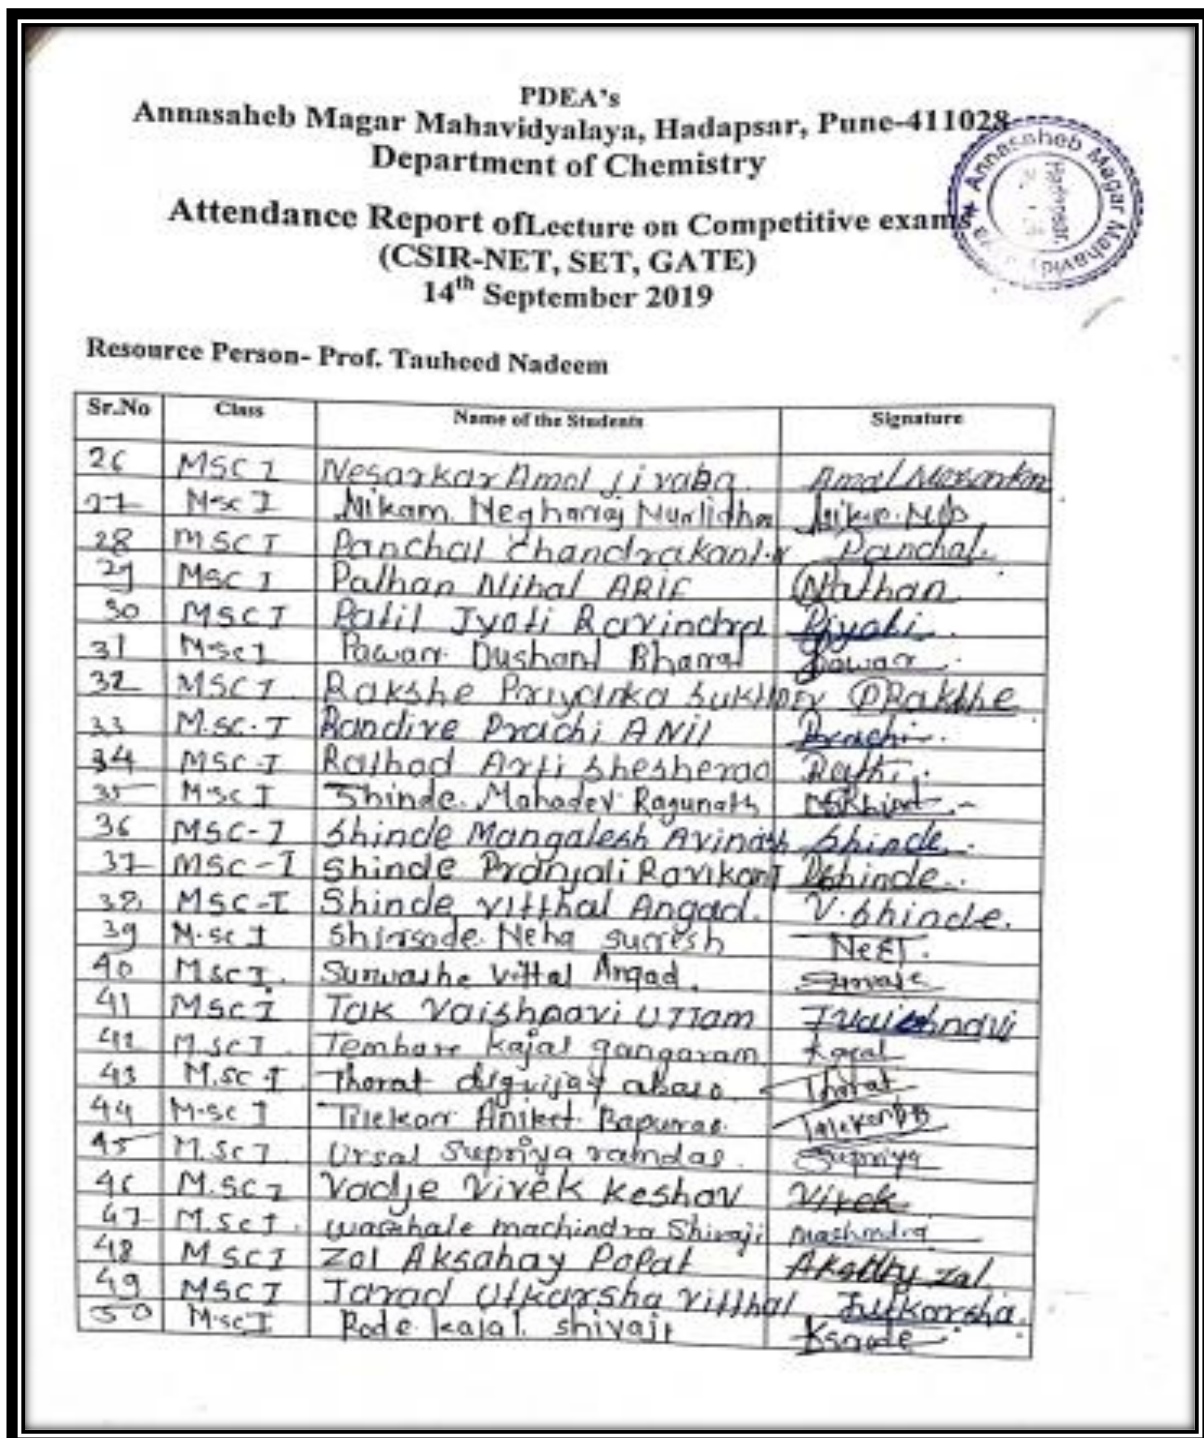 PDEA's
Annasaheb Magar Mahavidyalaya, Hadapsar, Pune-411028
Department of Chemistry
Annasaheb Magar Mahavid
Hadapsar,
Attendance Report ofLecture on Competitive exams
(CSIR-NET, SET, GATE)
14th September 2019
Resource Person- Prof. Tauheed Nadeem
Sr.No Class Name of the Students Signature
26 MSC I Nesarkar Amol Jivaba Amol Nesarkar
27 M-sc I Nikam Murlidha
28 MSC I Panchal Chandrakant Panchal.
29 MSC I Pathan Nihal ARIF Nathan
30 MSC I Patil Jyoti Ravindra
31 M-sc I Pawar Dushant Bharat Pawar
32 MSC I Rakshe Priyanka PRakshe
33 M.sc-I Randive Prachi ANIL Prachi.
34 MSC-I Rathod Arti Shesherao
35 M-sc I Shinde Mahadev Ragunath
36 MSC-I Shinde Mangalesh Avinash Shinde.
37 MSC-I Shinde Pranjali Ravikant PShinde.
38 MSC-I Shinde Vitthal Angad. V.Shinde.
39 M.sc I Shirsode Neha suresh
40 M.sc I. Surwashe Vittal Angad.
41 MSC I Tak Vaishnavi UTTam TVaishnavi
42 M.sc I Tembare kajal gangaram kajal
43 M.sc-I Thorat digvijay abaso. Thorat
44 M-sc I Tilekar Aniket Bapurao
45 M.sc I Ursal Supriya ramdas. Supriya
46 M.SC I Vadje Vivek Keshav Vivek
47 M.sc I. machindra Shivaji machindra
48 MSC I Zol Aksahay Popat zol
49 MSC I Jarad Utkarsha Vitthal Jutkarsha.
50 M-sc I Rode kajal shivaji